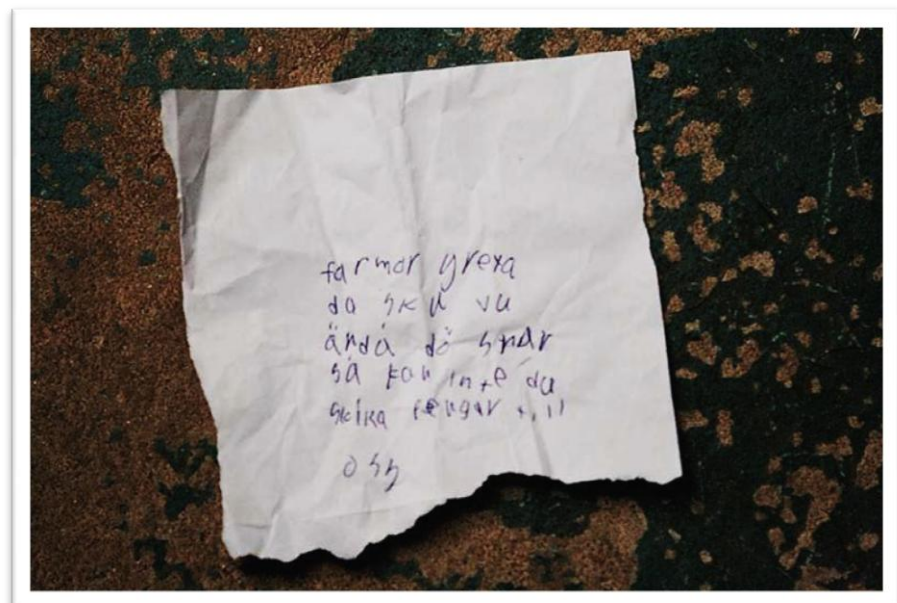 farmor grexa
da sku du
ändå dö snar
så kan inte du
skika pengar till
oss